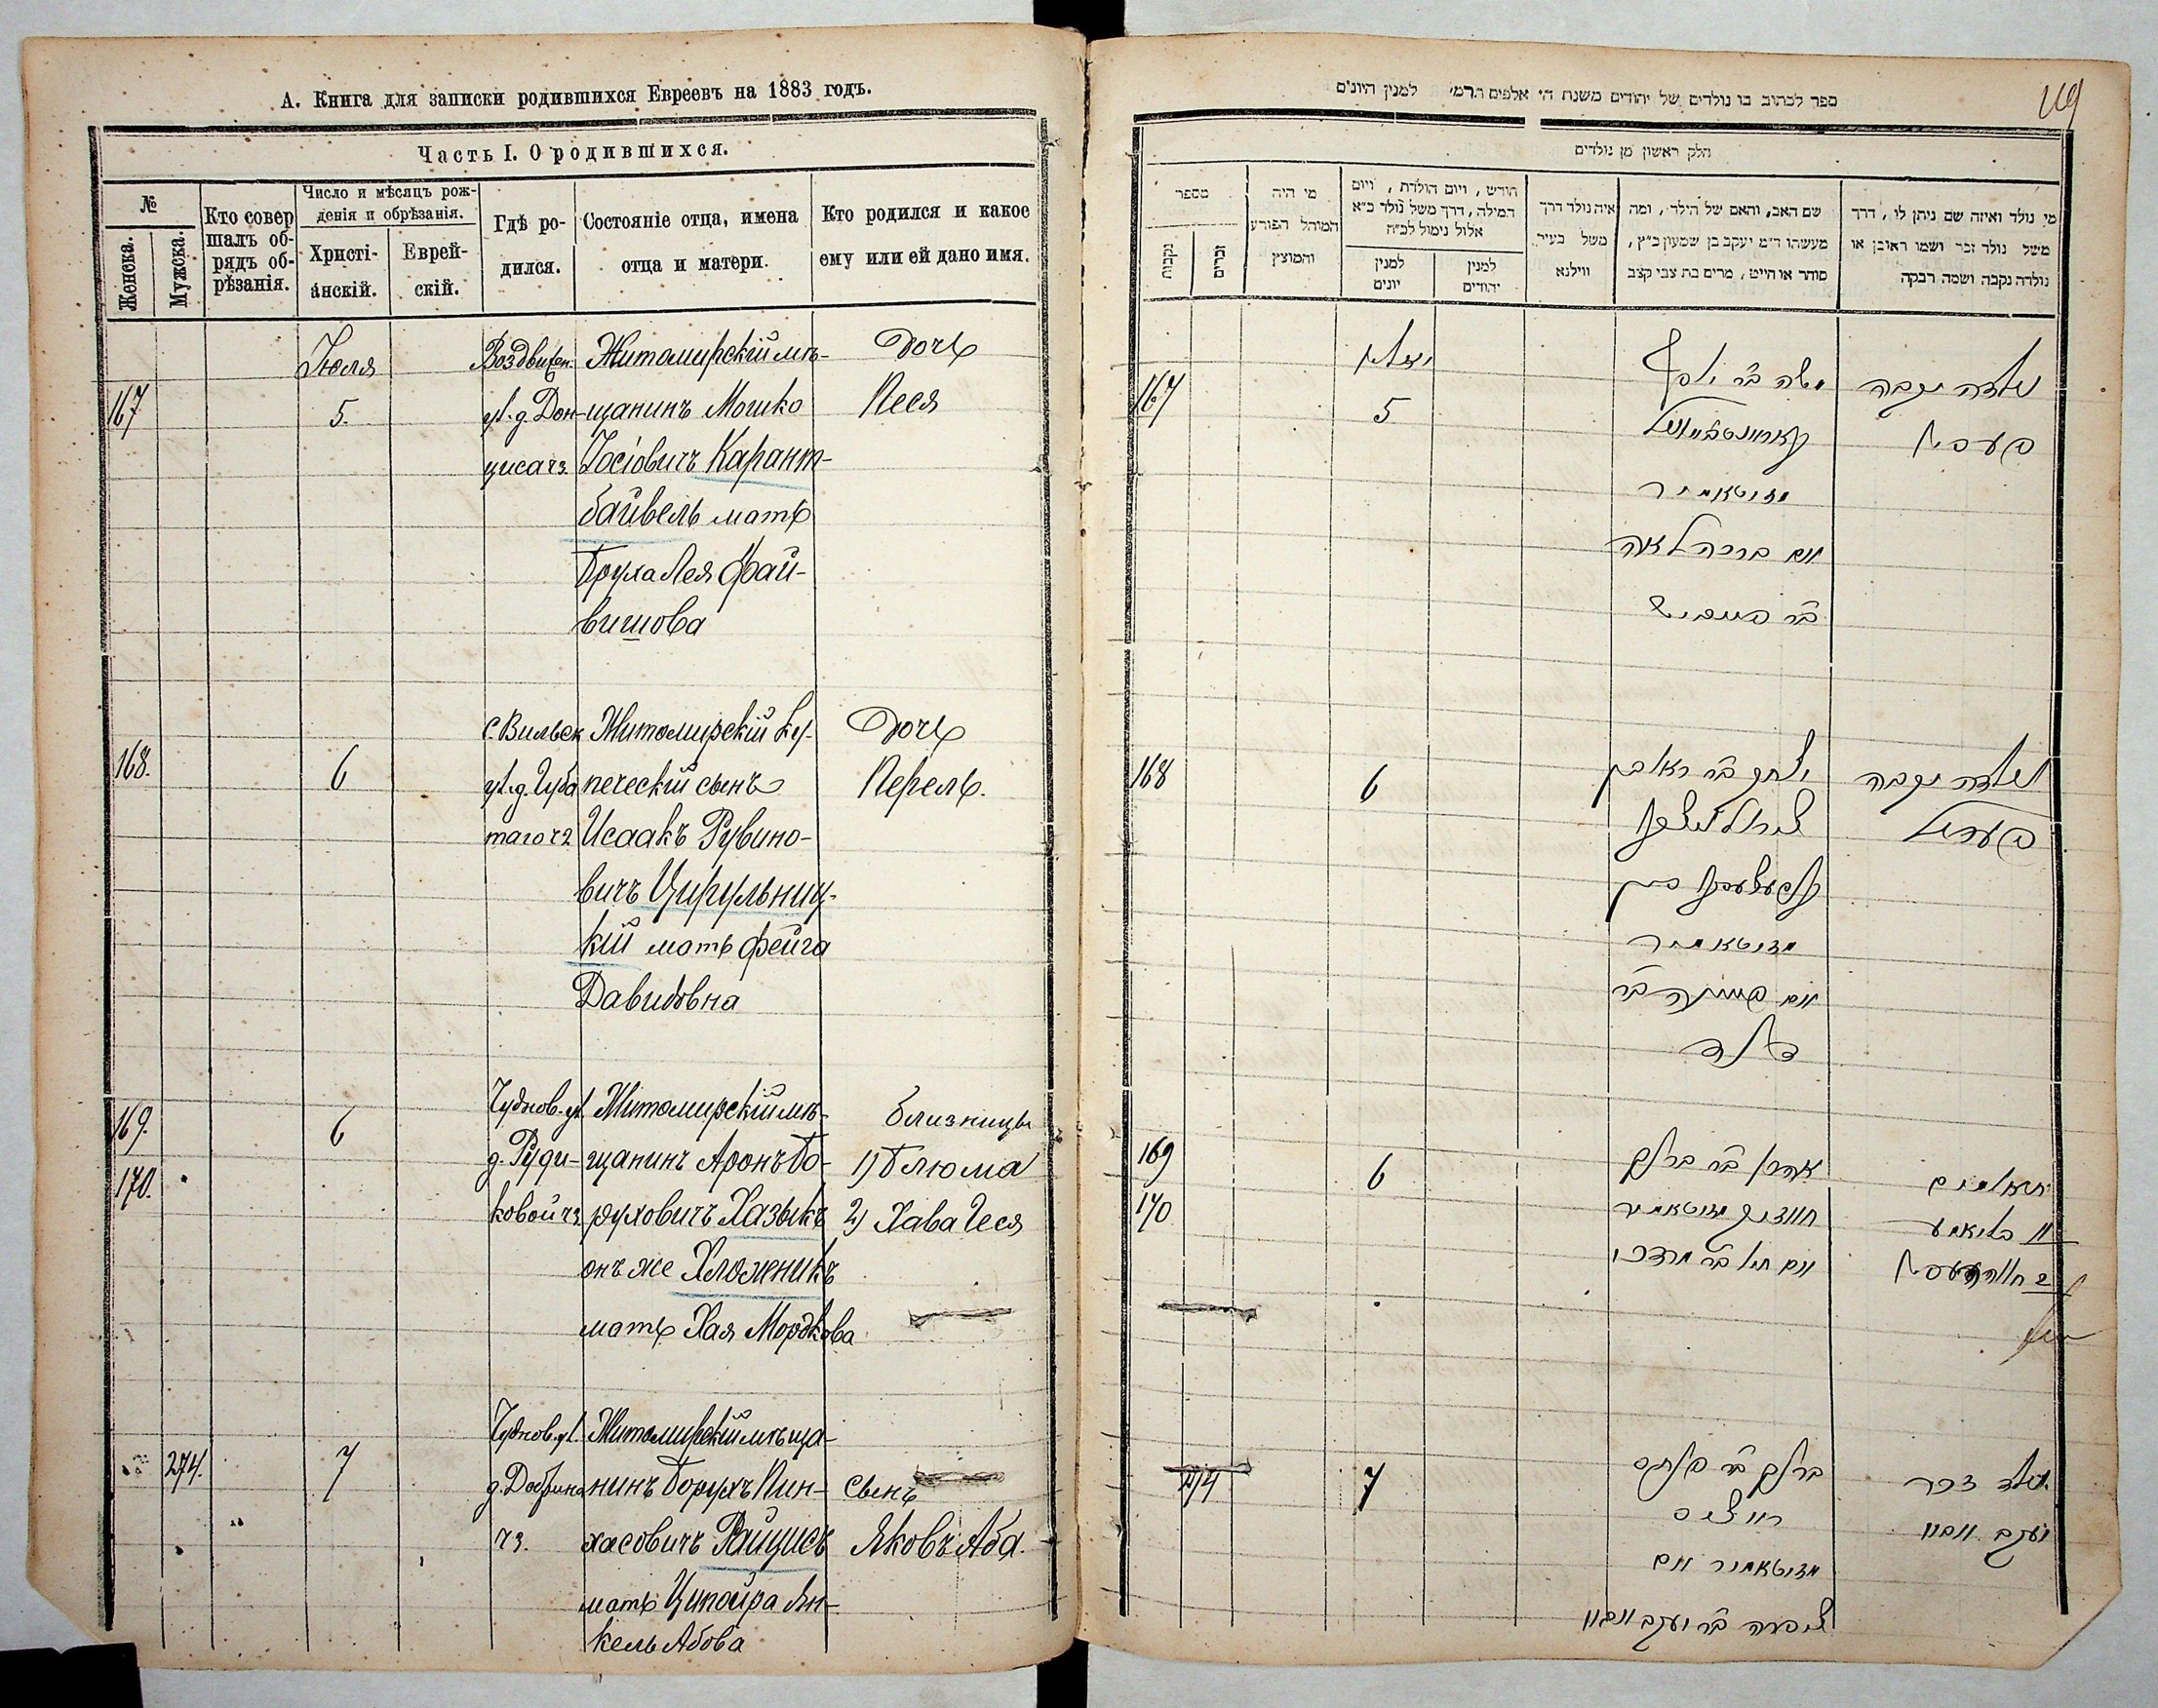 А. Книга для записки родившихся Евреевъ на 1883 годъ.
Часть I. О родившихся.
№
Женска.
Мужска.
Кто совер
шалъ об-
рядъ об-
рѣзанія.
Число и мѣсяцъ рож-
денія и обрѣзанія.
Христі-
анскій.
Еврей-
скій.
Гдѣ ро-
дился.
Состояніе отца, имена
отца и матери.
Кто родился и какое
ему или ей дано имя.
Іюля
167
5.
Воздвижен.
ул. д. Дон-
цисачз.
Житомирскій мѣ-
щанинъ Мошко
Іосіовичъ Карант-
байвель мать
Бруха Лея Фай-
вишова
Дочь
Песя
168.
6
с. Вильск
ул. д. Губа
таго чз
Житомирскій ку-
печескій сынъ
Исаакъ Рувино-
вичъ Цирульниц-
кій мать Фейга
Давидовна
Дочь
Перель.
169.
170.
6
Чуднов. ул.
д. Руди-
ковой чз
Житомирскій мѣ-
щанинъ Аронъ Бо-
руховичъ Хазыкъ
онъ же Хломеникъ
мать Хая Мордкова
близницы
1) Блюма
2) Хава Чеся
274.
7
Чуднов. ул.
д. Добрина
чз.
Житомирскій мѣща-
нинъ Борухъ Пин-
хасовичъ Райцисъ
мать Ципойра Ян-
кель Абова
Сынъ
Яковъ Аба.
ספר לכתוב בו נולדים של יהודים משנת ה' אלפים תרמ"ג למנין היונים
חלק ראשון מן נולדים
מספר
נקבות
זכרים
מי היה
המוהל הפורע
והמוצץ
חודש, ויום הולדת, ויום
המילה, דרך משל נולד כ"א
אלול נימול לכ"ח
למנין
יונים
למנין
יהודים
איה נולד דרך
משל בעיר
ווילנא
שם האב, והאם של הילד, ומה
מעשהו ד"מ יעקב בן שמעון כ"ץ,
סוחר או חייט, מרים בת צבי קצב
מי נולד ואיזה שם ניתן לו, דרך
משל נולד זכר ושמו ראובן או
נולדה נקבה ושמה רבקה
יולי
167
5
משה ב"ר יוסף
זיטאמיר
ואם ברכה לאה
ב"ר פייוויש
נולדה נקבה
פעסיא
168
6
יצחק ב"ר ראובן
זיטאמיר
ואם פייגא ב"ר
דוד
נולדה נקבה
פערל
169
170
6
אהרן ב"ר ברוך
זיטאמיר
ואם חיה ב"ר מרדכי
תאומים
בליומע
7
ברוך ב"ר פינחס
רייציס
זיטאמיר ואם
נולד זכר
יעקב